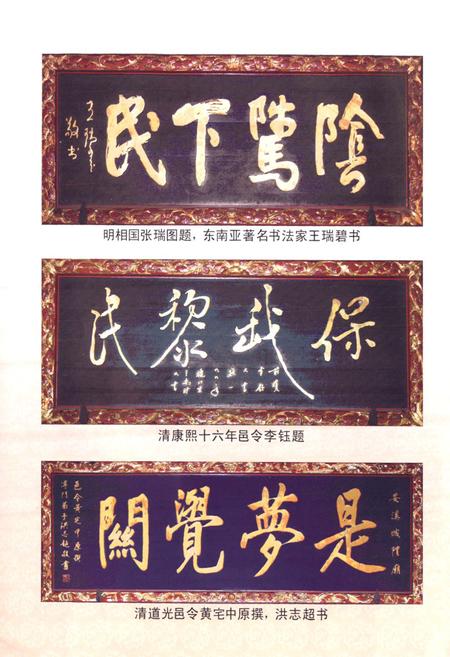 陰騭下民
王瑞璧
敬书
明相国张瑞图题，东南亚著名书法家王瑞碧书
保我黎民
清康熙十六年邑令李钰题
安溪城隍廟
是夢覺關
邑令黃宅中原撰
清道光邑令黄宅中原撰，洪志超书